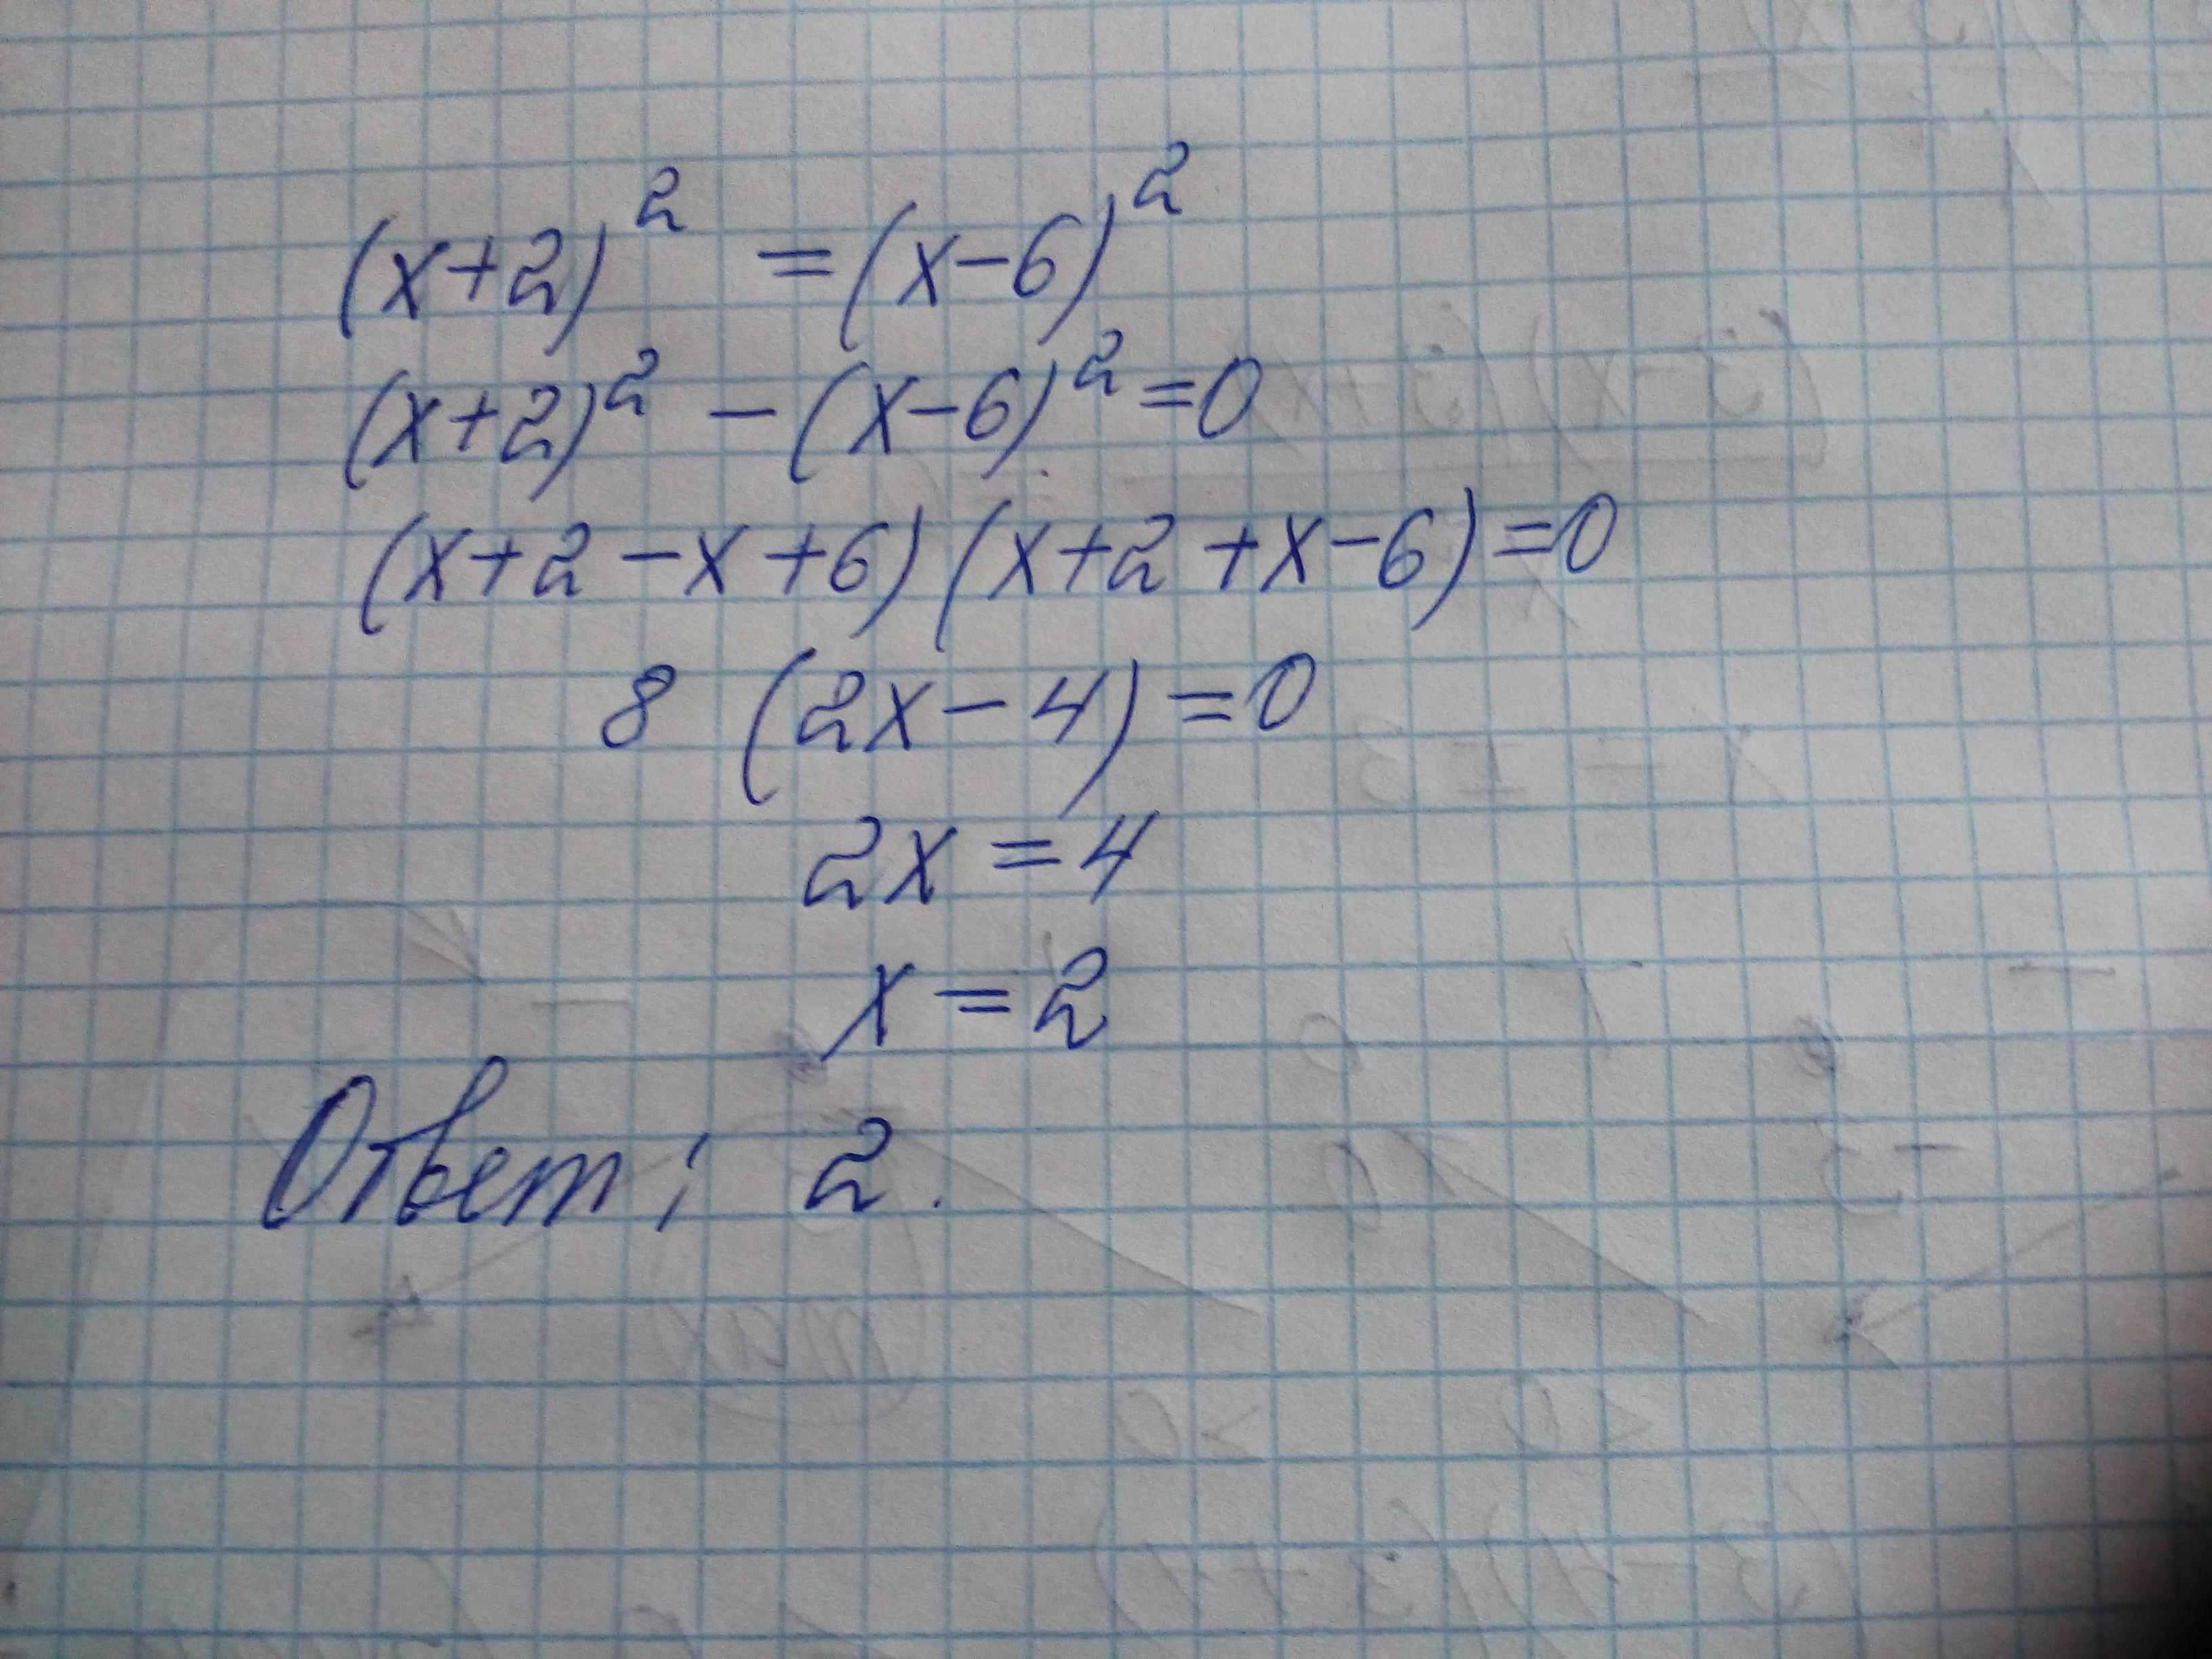 (x+2)² = (x-6)²
(x+2)² - (x-6)² = 0
(x+2-x+6)(x+2+x-6) = 0
8 (2x-4) = 0
2x = 4
x = 2
Ответ: 2.